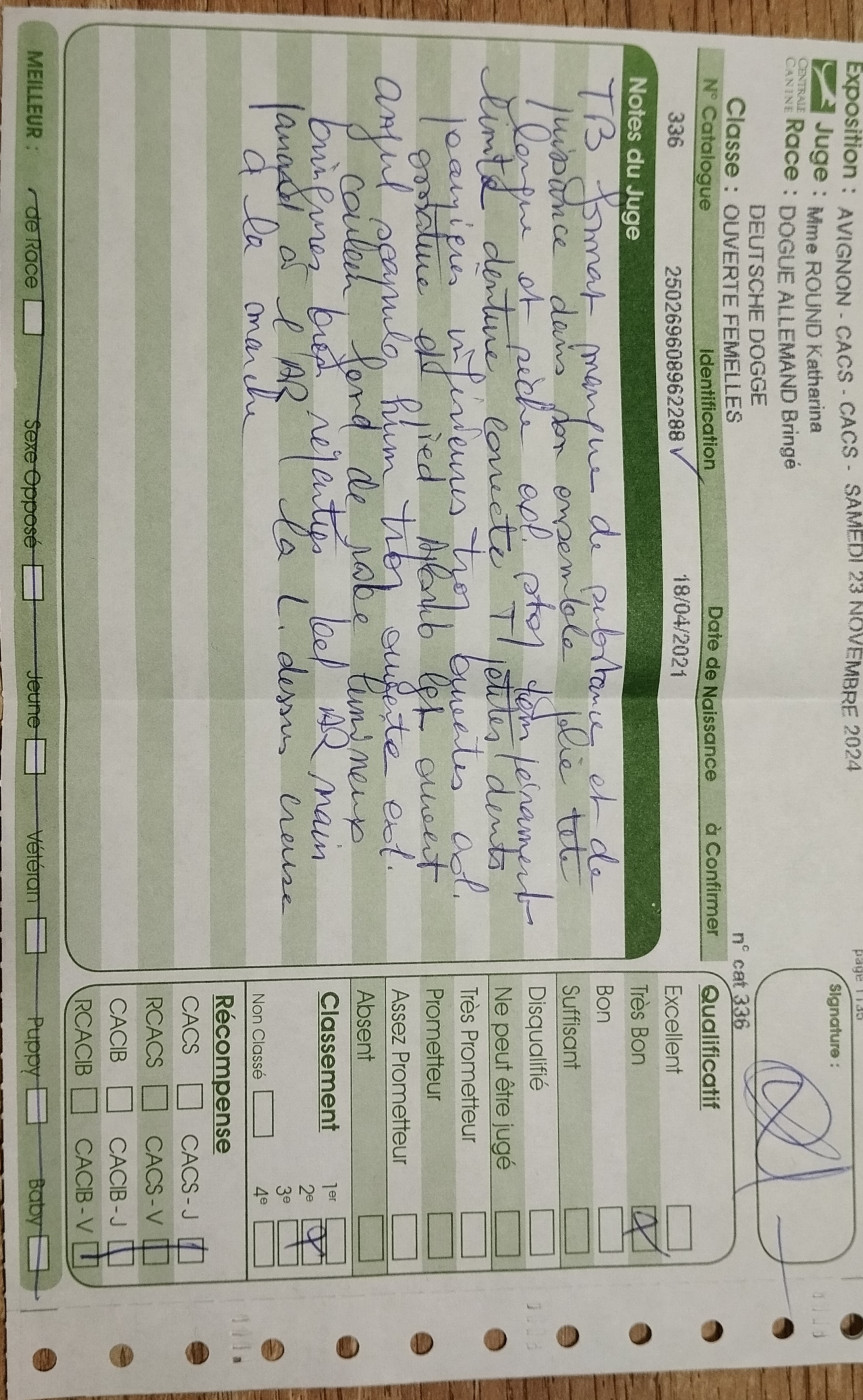 page 1 / 36
Exposition : AVIGNON - CACS - CACS - SAMEDI 23 NOVEMBRE 2024
Juge : Mme ROUND Katharina
CENTRALE CANINE
Race : DOGUE ALLEMAND Bringé
DEUTSCHE DOGGE
Classe : OUVERTE FEMELLES
n° cat 336
Signature :
N° Catalogue Identification Date de Naissance à Confirmer
336 250269608962288 18/04/2021
Notes du Juge
TB format manque de substance et de
puissance dans son ensemble jolie tête
longue et sèche
limite denture correcte T petites dents
paupières inférieures trop ouvertes
ossature et pied ouvert
angul scapulo hum trop ouverte
couleur fond de robe lumineux
bringures bien réparties bel AR main
à l'AR la L. dessus creuse
à la marche
Qualificatif
Excellent
Très Bon
Bon
Suffisant
Disqualifié
Ne peut être jugé
Très Prometteur
Prometteur
Assez Prometteur
Absent
Classement
1er
2e
3e
Non Classé 4e
Récompense
CACS CACS - J
RCACS CACS - V
CACIB CACIB - J
RCACIB CACIB - V
MEILLEUR : de Race Sexe Opposé Jeune Vétéran Puppy Baby